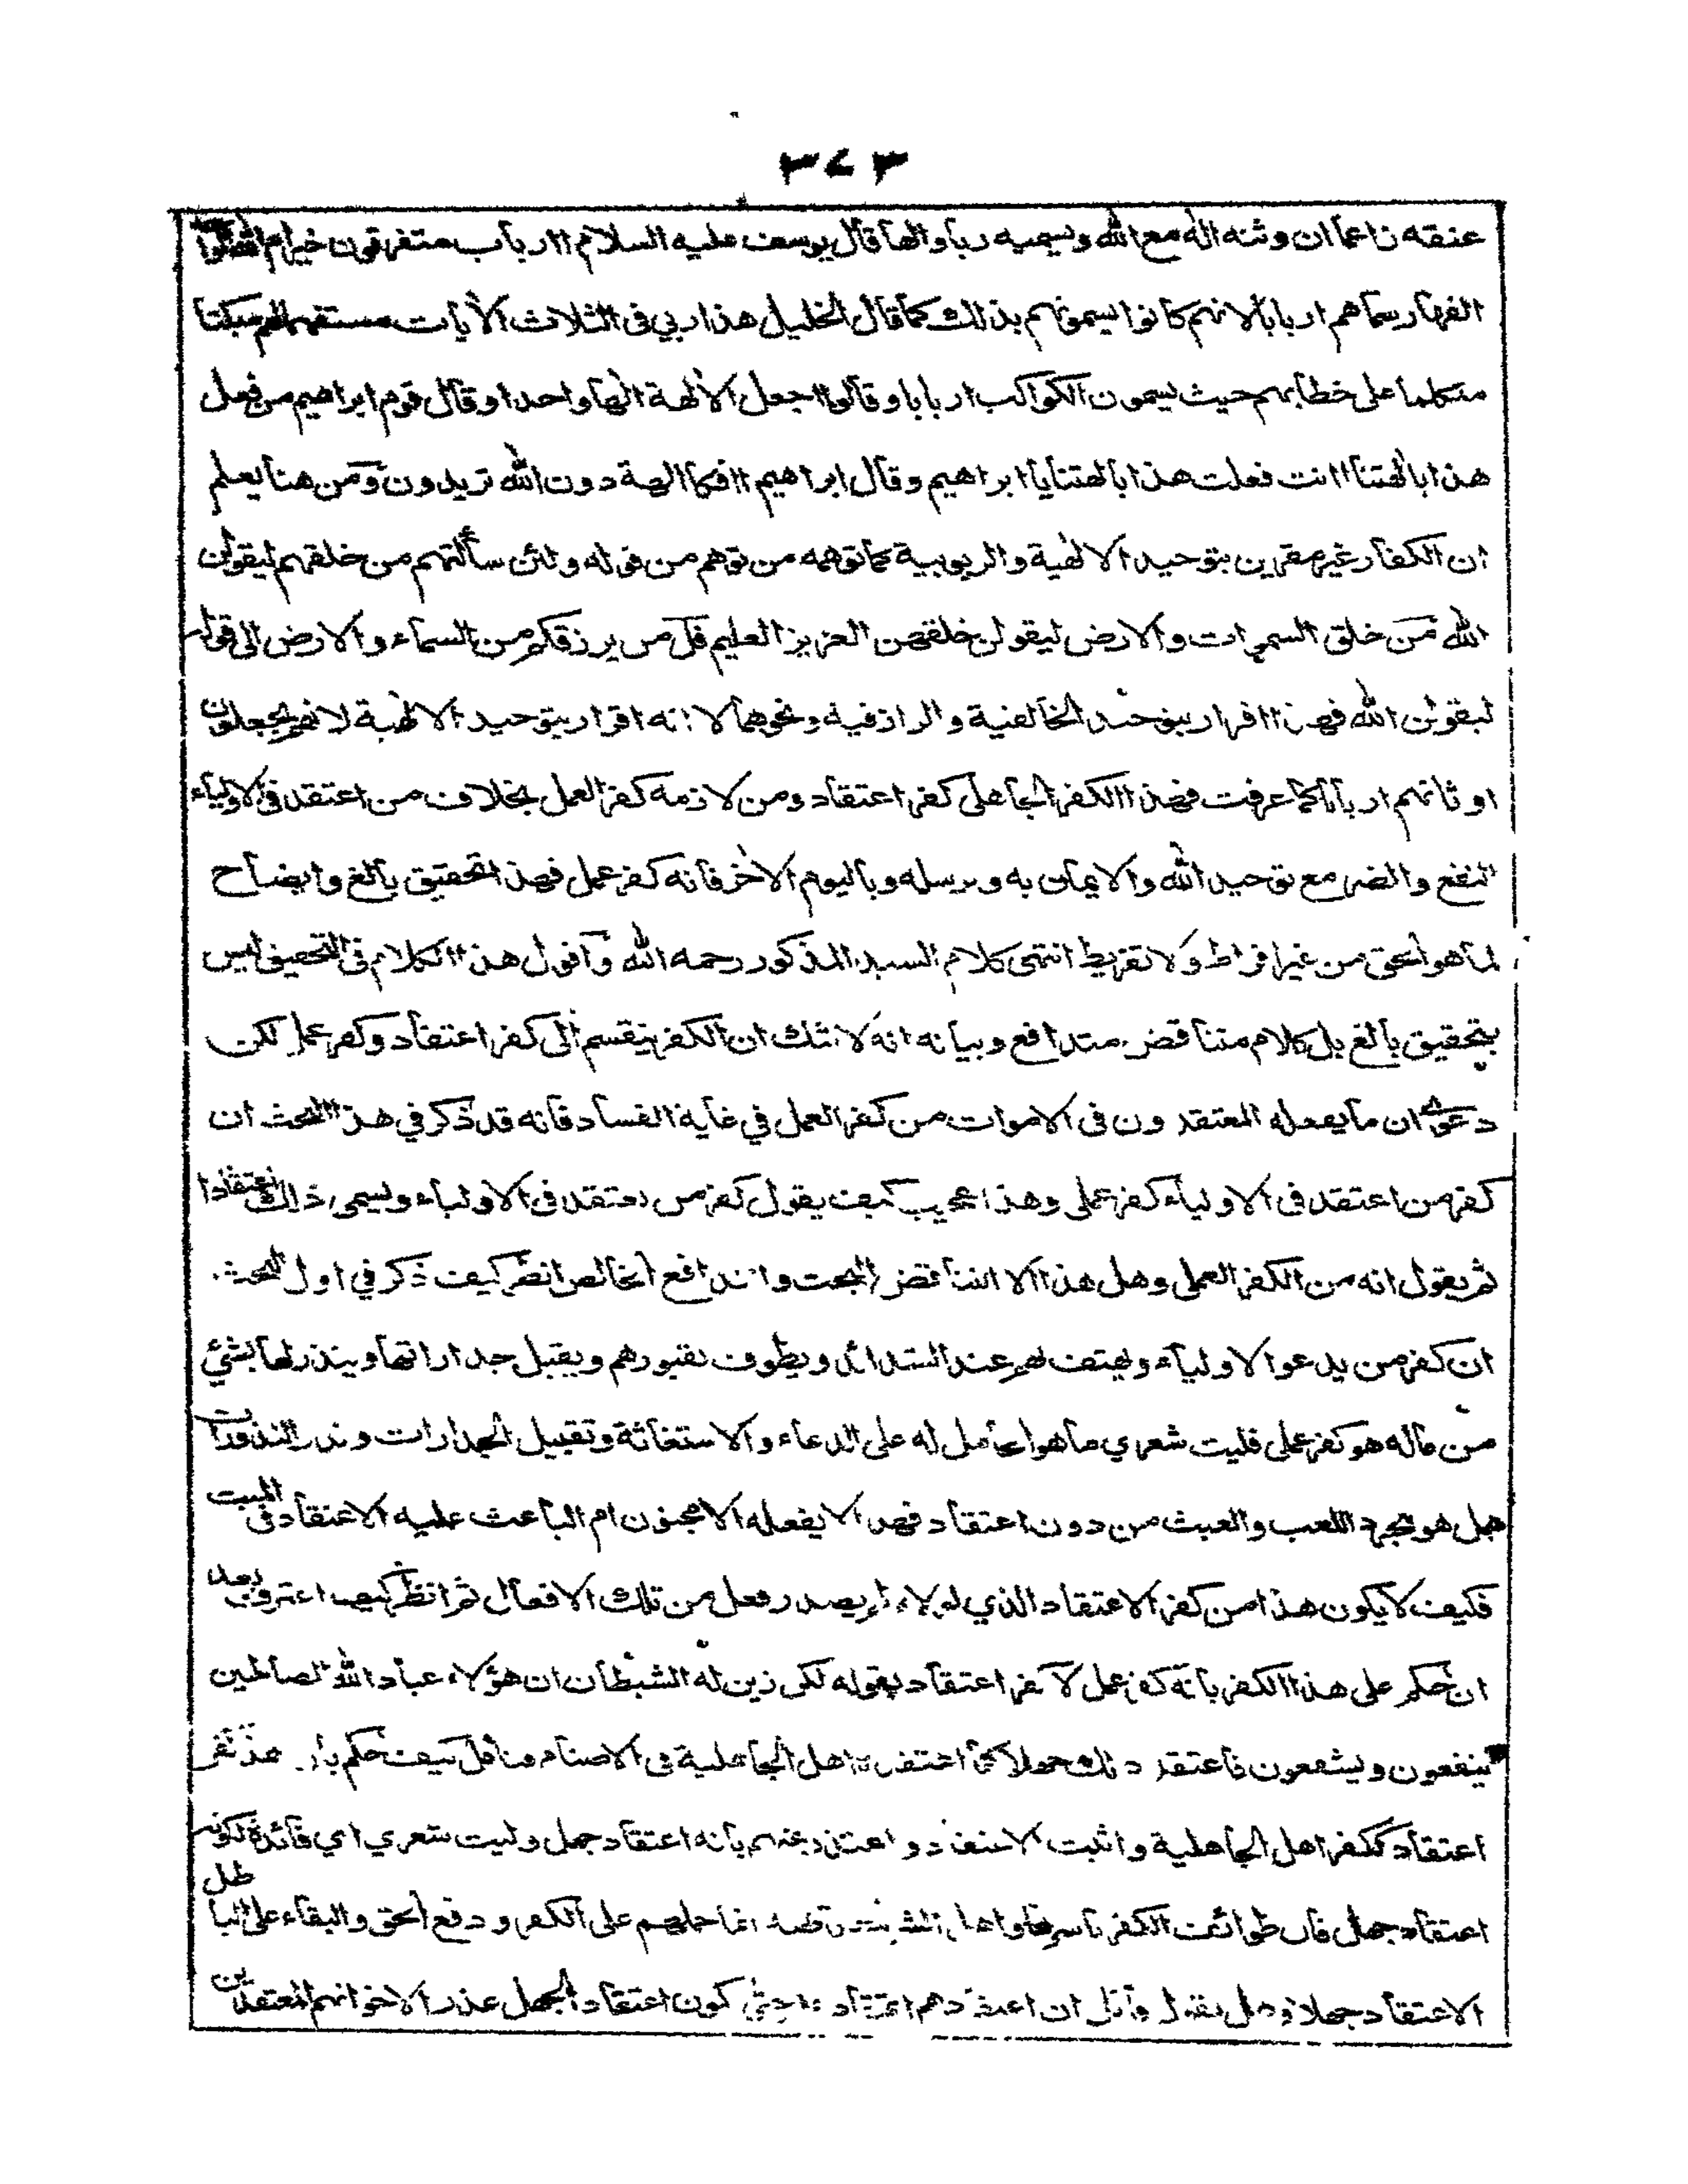 ٣٧٣
عنقه زاعما ان وثنه اله مع الله ويسميه ربا والها قال يوسف عليه السلام اارباب متفرقون خير ام الله الواحد
القهار سماهم اربابا لانهم كانوا يسمونهم بذلك كما قال الخليل هذا ربي فى الثلاث الأيات مستفهما لهم مبكتا
متكلما على خطابهم حيث يسمون الكواكب اربابا وقالوا اجعل الألهة الٰها واحدا وقال قوم ابراهيم من فعل
هذا بالٰهتنا اانت فعلت هذا بالهتنا يا ابراهيم وقال ابراهيم اافكا الهة دون الله تريدون ومن هنا يعلم
ان الكفار غير مقرين بتوحيد الالٰهية والربوبية كما توهمه من توهم من قوله ولئن سألتهم من خلقهم ليقولن
الله من خلق السموات والارض ليقولن خلقهن العزيز العليم قل من يرزقكم من السماء والارض الى قوله
ليقولن الله فهذا اقرار بتوحيد الخالقية والرازقية ونحوهما لا انه اقرار بتوحيد الالٰهية لانهم يجعلون
اوثانهم اربابا كما عرفت فهذا الكفر الجاهلى كفر اعتقاد ومن لازمه كفر العمل بخلاف من اعتقد فى الاولياء
النفع والضر مع توحيد الله والايمان به وبرسله وباليوم الاٰخر فانه كفر عمل فهذا تحقيق بالغ وايضاح
لما هو الحق من غير افراط ولا تفريط انتهى كلام السيد المذكور رحمه الله واقول هذا الكلام فى التحقيق ليس
بتحقيق بالغ بل كلام متناقض متدافع وبيانه انه لا شك ان الكفر ينقسم الى كفر اعتقاد وكفر عمل لكن
دعوى ان ما يفعله المعتقدون فى الاموات من كفر العمل في غاية الفساد فانه قد ذكر في هذا البحث ان
كفر من اعتقد فى الاولياء كفر عملى وهذا عجيب كيف يقول كفر من يعتقد فى الاولياء ويسمى ذلك اعتقادا
ثم يقول انه من الكفر العملى وهل هذا الا التناقض البحت والتدافع الخالص انظر كيف ذكر في اول البحث
ان كفر من يدعوا الاولياء ويهتف بهم عند الشدائد ويطوف بقبورهم ويقبل جداراتها وينذر لها بشئ
من ماله هو كفر عملى فليت شعري ما هو الحامل له على الدعاء والاستغاثة وتقبيل الجدارات ونذر النذورات
هل هو مجرد اللعب والعبث من دون اعتقاد فهذا لا يفعله الا مجنون ام الباعث عليه الاعتقاد فى الميت
فكيف لا يكون هذا من كفر الاعتقاد الذي لولاه لم يصدر فعل من تلك الافعال ثم انظر كيف اعترف بعد
ان حكم على هذا الكفر بانه كفر عمل لا كفر اعتقاد بقوله لكن زين له الشيطان ان هؤلاء عباد الله الصالحين
ينفعون ويشفعون فاعتقد ذلك جهلا كما اعتقد اهل الجاهلية فى الاصنام فتأمل كيف حكم بان هذا كفر
اعتقاد ككفر اهل الجاهلية واثبت الاعتقاد واعتذر عنهم بانه اعتقاد جهل وليت شعري اي فائدة لكونه
اعتقاد جهل فان طوائف الكفر باسرها واهل الشرك قاطبة انما حملهم على الكفر ودفع الحق والبقاء على الباطل
الاعتقاد جهلا وهل يقول قائل ان اعتقادهم اعتقاد حتى يكون اعتقاد الجهل عذرا لاخوانهم المعتقدين